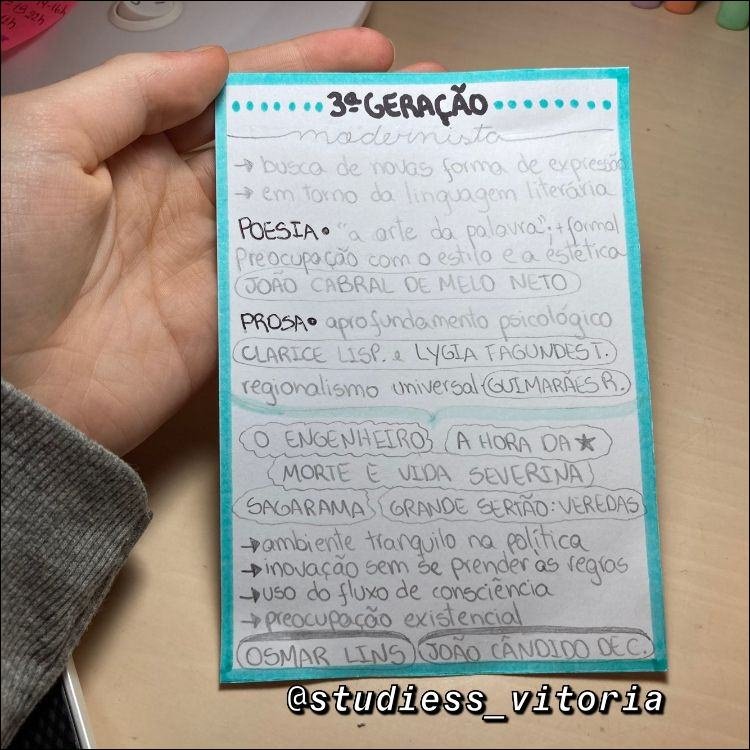 3ª GERAÇÃO
modernista
→ busca de novas forma de expressão
→ em torno da linguagem literária
POESIA• "a arte da palavra"; + formal
Preocupação com o estilo e a estética
JOÃO CABRAL DE MELO NETO
PROSA• aprofundamento psicológico
CLARICE LISP. e LYGIA FAGUNDES T.
regionalismo universal GUIMARÃES R.
O ENGENHEIRO A HORA DA ★
MORTE E VIDA SEVERINA
SAGARAMA GRANDE SERTÃO: VEREDAS
→ ambiente tranquilo na política
→ inovação sem se prender às regras
→ uso do fluxo de consciência
→ preocupação existencial
OSMAR LINS JOÃO CÂNDIDO DEC.
@studiess_vitoria